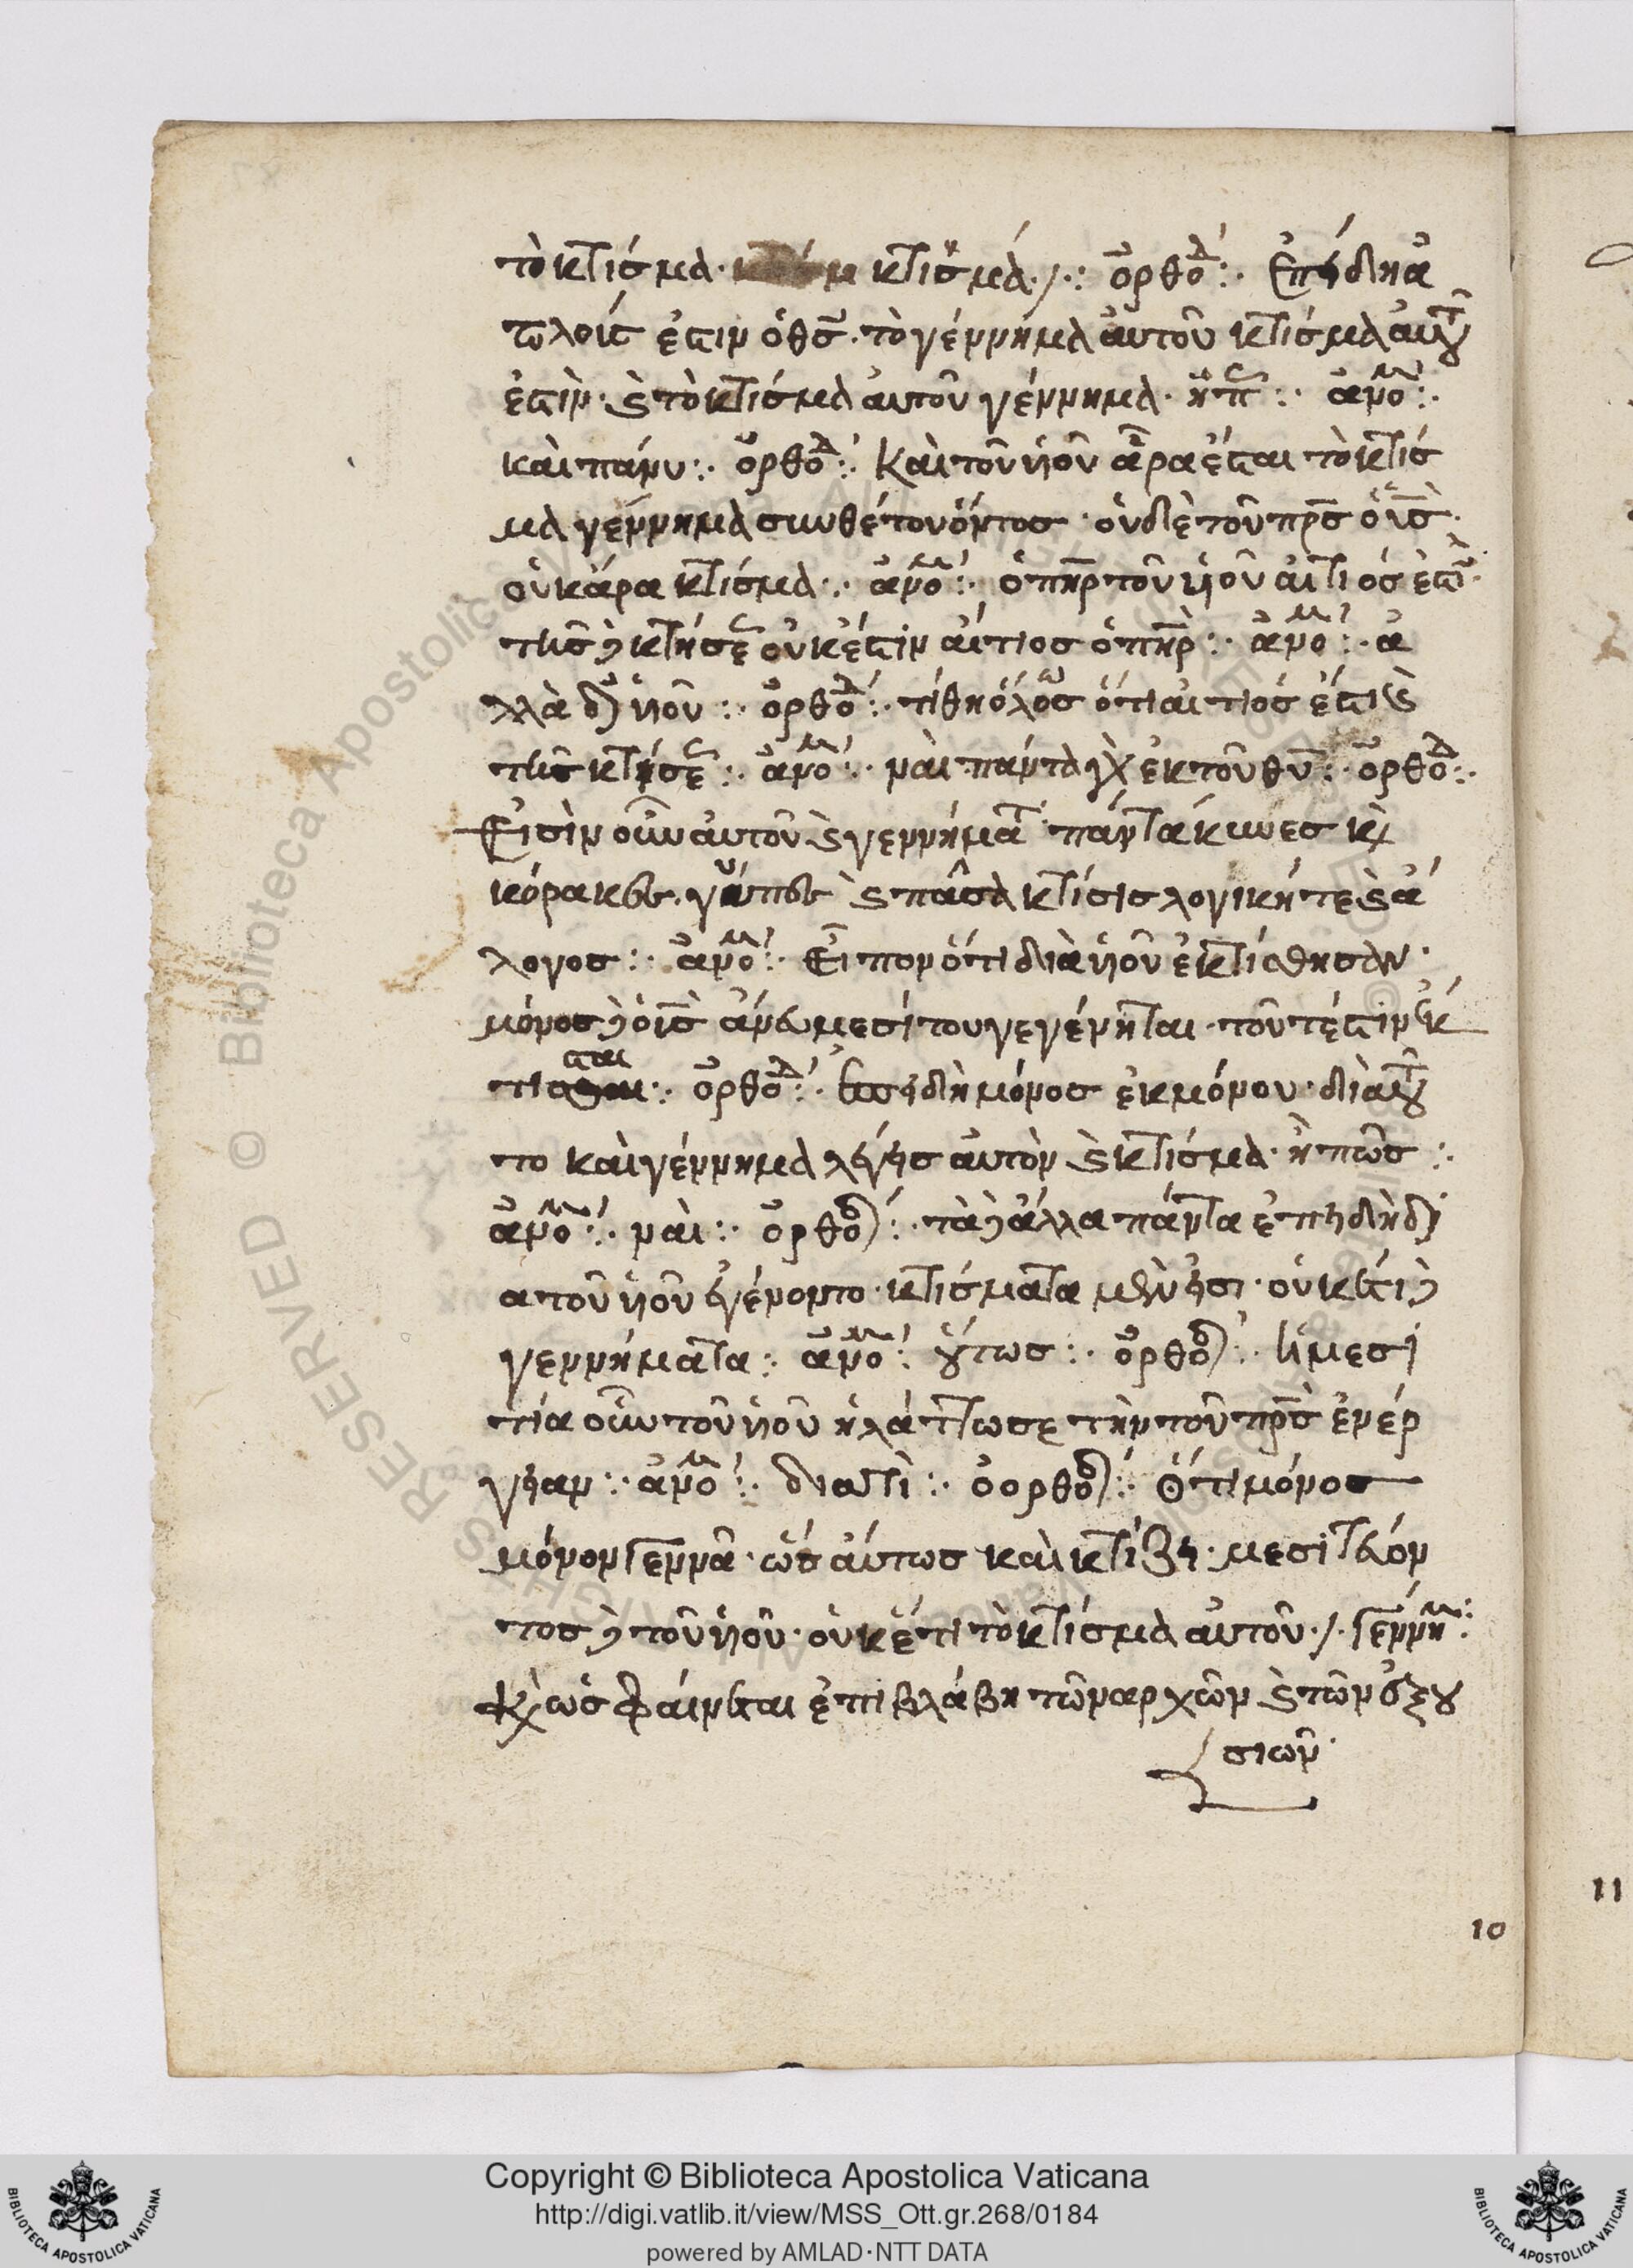 τὸ κτίσμα· κτίσμα·/·: ὀρθοδ: Ἐπειδὴ ἁ
πλούς ἐστιν ὁ θς· τὸ γέννημα αὐτοῦ κτίσμα αὐτοῦ
ἐστὶν· καὶ τὸ κτίσμα αὐτοῦ γέννημα· ἢ πς: ἀνομ:
καὶ πάνυ: ὀρθοδ: Καὶ τοῦ ὑιοῦ ἄρα ἔσται τὸ κτίσ
μα γέννημα συνθέτου ὄντος· οὐδὲ τοῦ πρς ὁ ὑις·
οὐκ ἄρα κτίσμα: ἀνομ: ὁ πηρ τοῦ ὑιοῦ αἴτιός ἐστι·
τῆς δὲ κτήσεως οὐκ ἔστιν αἴτιος ὁ πηρ: ἀνομ: ἀ
λλὰ δι ὑιοῦ: ὀρθοδ: τίθη ὅλως ὅτι αἴτιός ἐστι καὶ
τῆς κτήσεως: ἀνομ: ναὶ πάντα γὰρ ἐκ τοῦ θυ: ὀρθοδ:
Εἰσὶν οὖν αὐτοῦ καὶ γεννήματα πάντα κύνες καὶ
κόρακες· γῦπες καὶ πᾶσα κτίσις λογική τε καὶ ἄ
λογος: ἀνομ: Εἶπον ὅτι διὰ ὑιοῦ ἐκτίσθησαν·
μόνος δὲ ὁ ὑις ἄνευ μεσίτου γεγένηται· τουτέστιν ἔκ
τισται: ὀρθοδ: Ἐπειδὴ μόνος ἐκ μόνου· διὰ τοῦ
το καὶ γέννημα λέγεις αὐτὸν καὶ κτίσμα· ἢ πῶς:
ἀνομ: ναὶ: ὀρθοδ: τὰ δὲ ἄλλα πάντα ἐπειδὴ δι
α τοῦ ὑιοῦ ἐγένοντο· κτίσματα μέν εἰσι· οὐκέτι δὲ
γεννήματα: ἀνομ: οὕτως: ὀρθοδ: Ἡ μεσι
τία οὖν τοῦ ὑιοῦ ἠλάττωσε τὴν τοῦ πρς ἐνέρ
γειαν: ἀνομ: διατὶ: ὁ ορθοδ: Ὅτι μόνος
μόνον γεννᾶ· ὡσαύτως καὶ κτίζει· μεσιτεύον
τος δὲ τοῦ ὑιοῦ· οὐκέτι τὸ κτίσμα αὐτοῦ·/· γέννημ:
καὶ ὡς φαίνεται ἐπὶ βλάβη τῶν αρχῶν καὶ τῶν ἐξου
σιῶν·
10
11
Copyright © Biblioteca Apostolica Vaticana
http://digi.vatlib.it/view/MSS_Ott.gr.268/0184
powered by AMLAD·NTT DATA
BIBLIOTECA APOSTOLICA VATICANA
BIBLIOTECA APOSTOLICA VATICANA